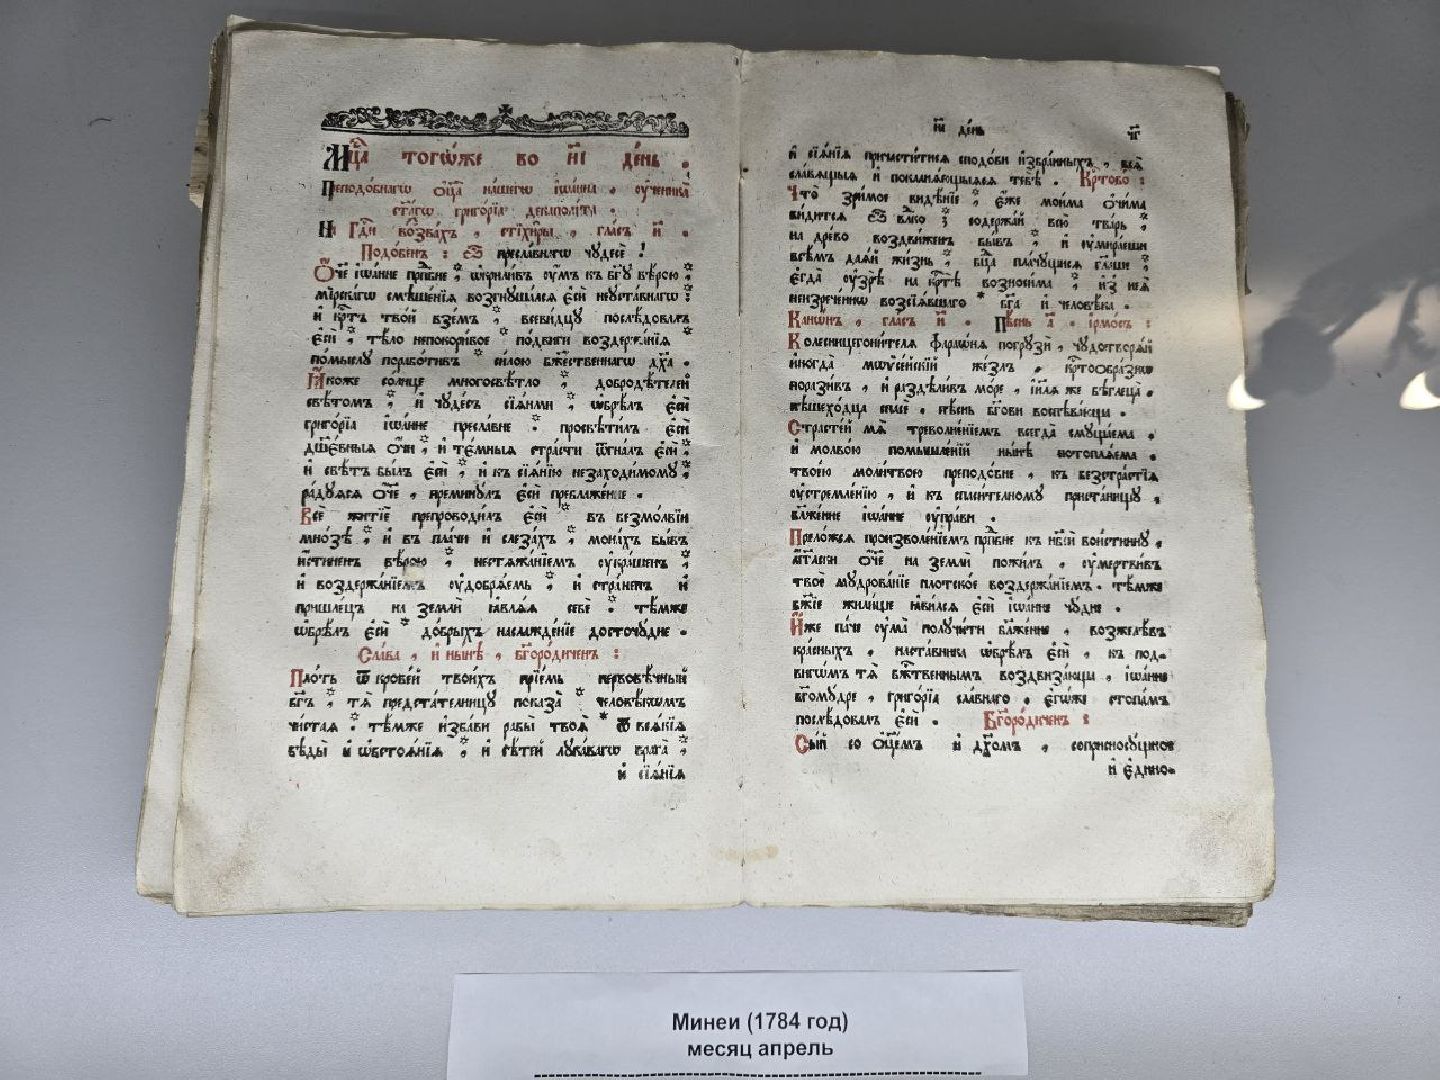 Мц҃а тогѡ́же во и҃і де́нь .
Преподо́бнагѡ ѻц҃а̀ на́шегѡ і҆ѡа́нна , ᲂу҆ченика̀
ст҃а́гѡ григо́рїа декаполі́та .
На Гдⷭ҇и воззва́хъ , стїхи̑ры , гла́съ и҃ .
Подо́бенъ : Ѽ пресла́внагѡ чꙋдесѐ !
Ѻ҆́ч҃е і҆ѡа́нне прпⷣбне , ѡ҆крили́въ ᲂу҆́мъ къ бг҃ꙋ вѣ́рою ,
мїрска́гѡ смѣше́нїѧ возгнꙋша́лсѧ є҆сѝ неꙋста́внагѡ :
и҆ крⷭ҇тъ тво́й взе́мъ , всеви́дцꙋ послѣ́довалъ
є҆сѝ , тѣ́ло непокори́вое по́двиги воздержа́нїѧ
по́мыслꙋ порабо́тивъ си́лою бж҃е́ственнагѡ дх҃а .
Ꙗ҆́коже со́лнце многосвѣ́тло , добродѣ́телей
свѣ́томъ , и҆ чꙋде́съ сїѧ́ньми , ѡ҆брѣ́лъ є҆сѝ
григо́рїа і҆ѡа́нне пресла́вне просвѣти́лъ є҆сѝ
дш҃е́вныѧ ѻ҆́чи , и҆ те́мныѧ стра́сти ѿгна́лъ є҆сѝ ,
и҆ свѣ́тъ бы́лъ є҆сѝ , и҆ къ сїѧ́нїю незаходи́момꙋ ,
ра́дꙋѧсѧ ѻ҆́ч҃е , преминꙋ́лъ є҆сѝ преблаже́нне .
Всѐ житїѐ препроводи́лъ є҆сѝ въ безмо́лвїи
мно́зѣ , и҆ въ пла́чи и҆ слеза́хъ , мона́хъ бы́въ
и҆́стиненъ вѣ́рою , нестѧжа́нїемъ ᲂу҆кра́шенъ ,
и҆ воздержа́нїемъ ᲂу҆добрѧ́емь , и҆ стра́ненъ и҆
прише́лецъ на землѝ ꙗ҆влѧ́ѧ себѐ тѣ́мже
ѡ҆брѣ́лъ є҆сѝ до́брыхъ наслажде́нїе досточꙋ́дне .
Сла́ва , и҆ ны́нѣ , бг҃оро́диченъ :
Пло́ть ѿ крове́й твои́хъ прїе́мь первовѣ́чный
бг҃ъ , тѧ̀ предста́телницꙋ показа̀ человѣ́кѡмъ
чи́стаѧ тѣ́мже и҆зба́ви рабы̑ твоѧ̑ ѿ всѧ́кїѧ
бѣды̀ и҆ ѡ҆бстоѧ́нїѧ , и҆ сѣ́тей лꙋка́вагѡ врага̀ ,
и҆ сїѧ́нїѧ
и҃і де́нь ч҃г
и҆ сїѧ́нїѧ причасти́тисѧ сподо́би и҆збра́нныхъ , всѧ̑
сла́вѧщыѧ и҆ покланѧ́ющыѧсѧ тебѣ̀ . Крⷭ҇тобо́г :
Что̀ зри́мое видѣ́нїе , є҆́же мои́ма ѻ҆чи́ма
ви́дитсѧ ѽ влⷣко з содержа́й всю̀ тва́рь ,
на дре́во воздви́женъ бы́въ , и҆ ᲂу҆мира́еши
всѣ̑мъ даѧ́й жи́знь , бц҃а пла́чꙋщисѧ гл҃аше ,
є҆гда̀ ᲂу҆зрѣ̀ на крⷭ҇тѣ̀ возноси́ма и҆з̾ неѧ̀
неизрече́ннѡ возсїѧ́вшаго бг҃а и҆ человѣ́ка .
Канѡ́нъ , гла́съ и҃ . Пѣ́снь а҃ . і҆рмо́съ :
Колесницегони́телѧ фараѡ́нѧ погрꙋзѝ , чꙋдотворѧ́й
и҆ногда̀ мѡѷсе́йскїй же́злъ , крⷭ҇тоѡбра́знѡ
порази́въ , и҆ раздѣли́въ мо́ре , і҆и҃лѧ же бѣглеца̀
пѣшехо́дца спасѐ , пѣ́снь бг҃ови воспѣва́юща .
Страсте́й мѧ̀ треволне́нїемъ всегда̀ смꙋща́ема .
и҆ молво́ю помышле́нїй ны́нѣ потоплѧ́ема .
твое́ю моли́твою преподо́бне , къ безстра́стїѧ
ᲂу҆стремле́нїю , и҆ къ спаси́телномꙋ приста́нищꙋ ,
бл҃же́нне і҆ѡа́нне ᲂу҆пра́ви .
Преложе́сѧ произволе́нїемъ прпⷣбне къ нб҃сѝ вои́стиннꙋ ,
а҆́гг҃лски ѻ҆́ч҃е на землѝ пожи́лъ , ᲂу҆мертви́въ
твоѐ мꙋдрова́нїе плотско́е воздержа́нїемъ . тѣ́мже
бж҃їе жили́ще ꙗ҆ви́лсѧ є҆сѝ і҆ѡа́нне чꙋ́дне .
И҆́же па́че ᲂу҆ма̀ полꙋчи́ти бл҃же́нне , возжелѣ́въ
кра́сныхъ , наста́вника ѡ҆брѣ́лъ є҆сѝ , къ под-
вигѡ́мъ тѧ̀ бжⷭ҇твеннымъ воздвиза́юща , і҆ѡа́нне
бг҃омꙋ́дре , григо́рїа сла́внаго , є҆гѡ́же стопа́мъ
послѣ́довалъ є҆сѝ . Бг҃оро́диченъ :
Сы́й со ѻ҆ц҃е́мъ и҆ дх҃омъ , соприсносꙋ́щное
и҆ є҆дино-
Минеи (1784 год)
месяц апрель